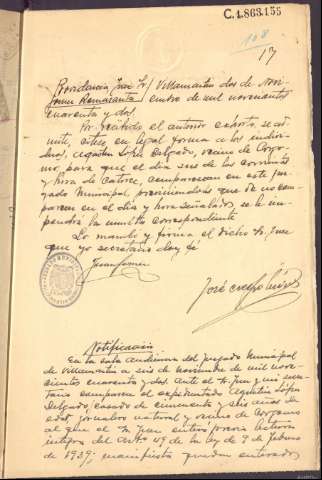 C.1.863.155
108
17
Providencia Juez Sr./ Villamartin dos de Novi-
embre de mil novecientos
cuarenta y dos.
Por recibido el anterior exhorto
cítese en legal forma a los
Agustín López Delgado, vecino de Corgo-
mo para que el día seis de los corrientes
y hora de catorce, comparezcan en este juz-
gado Municipal, previniéndoles que de no com-
parecer en el día y hora señalados se le im-
pondrá la multa correspondiente.
Lo mandó y firma el dicho Sr. Juez
que yo secretario doy fé
José
Notificación
En la sala audiencia del juzgado Municipal
de Villamartin a seis de noviembre de mil nove-
cientos cuarenta y dos. Ante el Sr. Juez y mi secre-
tario comparece el expedientado Agustín López
Delgado, casado de cincuenta y seis años de
edad, jornalero natural y vecino de Corgomo
al que el Sr. Juez previa lectura
íntegra del Artº 49 de la ley de 9 de Febrero
de 1939; manifiesta quedar enterado